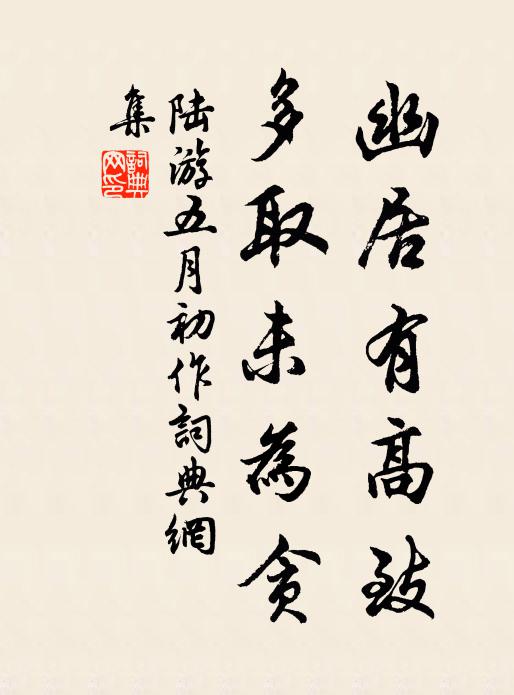 幽居有高致
多取未為貪
陆游五月初作詞典網
集
詞典網印